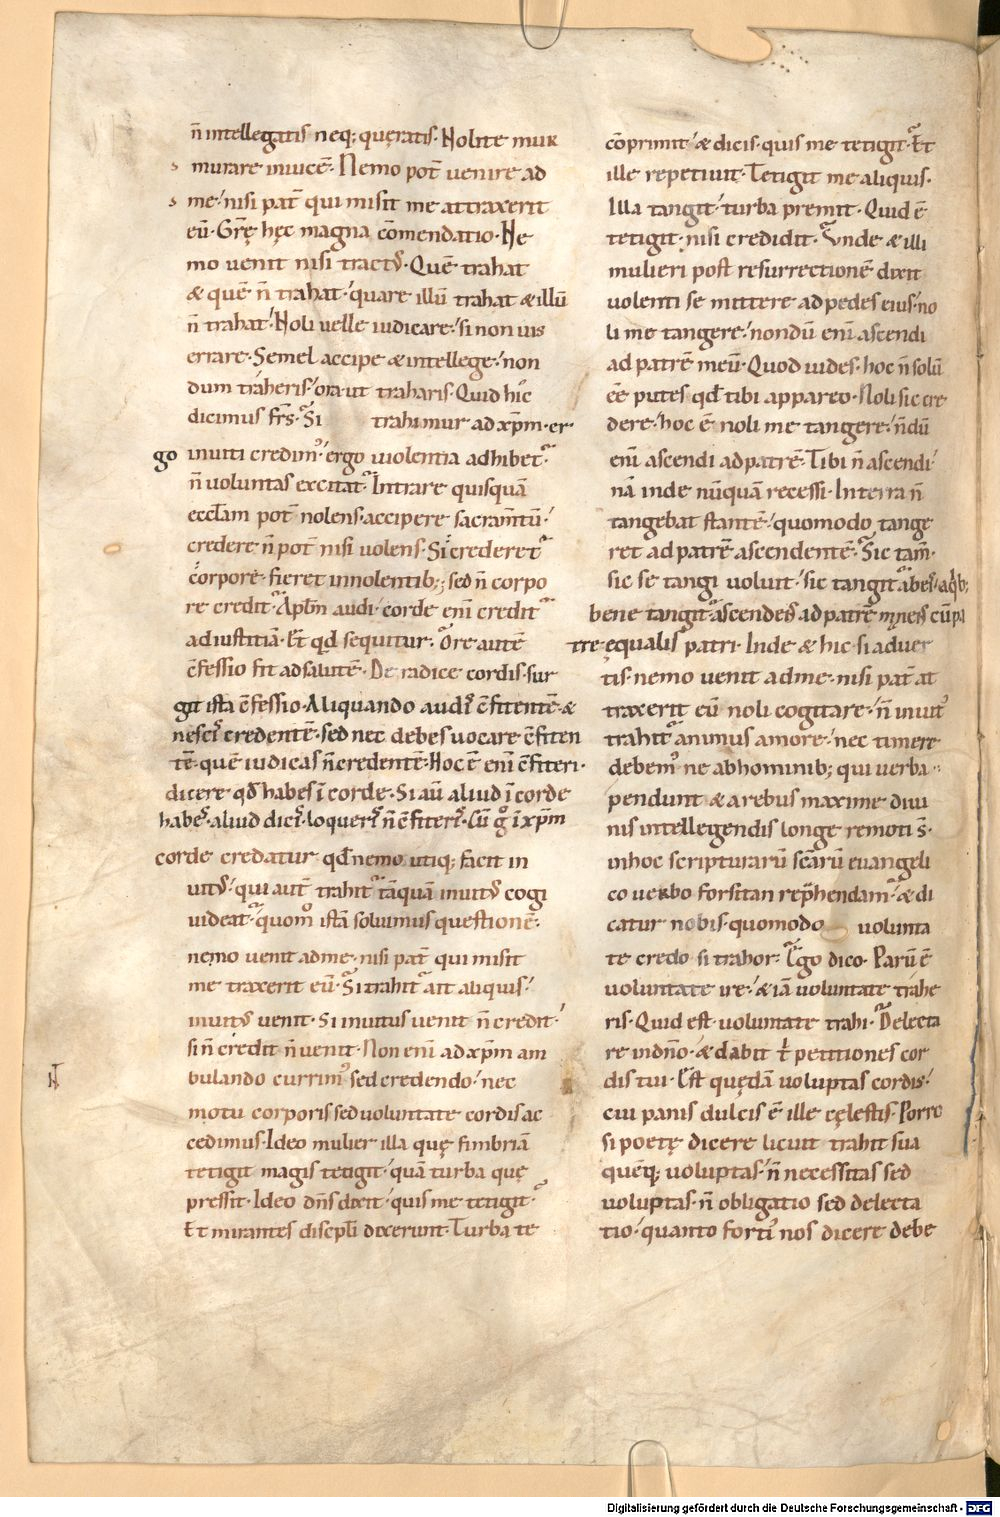 n̄ intellegatis neq; quęratis· Nolite mur
murare inuicē· Nemo pot̄ uenire ad
me· nisi pat̄ qui misit me attraxerit
eū· Grę hęc magna cōmendatio· Ne
mo uenit nisi tractꝰ· Quē trahat
& quē n̄ trahat· quare illū trahat & illū
n̄ trahat· Noli uelle iudicare· si non uis
errare· Semel accipe & intellege· non
dum traheris· ora ut traharis· Quid hic
dicimus frs̄· Si trahimur ad xp̄m· er
go inuiti credimꝰ· ergo uiolentia adhibet̄·
n̄ uoluntas excitat̄· Intrare quisquā
eccl̄am pot̄ nolens· accipere sacram̄tū·
credere n̄ pot̄ nisi uolens· Si crederet̄
corpore· fieret in nolentib;· sed n̄ corpo
re credit̄· Apl̄m audi· corde enī credit̄
ad iustitiā· Et qd̄ sequitur· Ore autē
c̄fessio fit ad salutē· De radice cordis sur
git ista c̄fessio· Aliquando audis c̄fitentē· &
nescis credentē· sed nec debes uocare c̄fiten
tē· quē iudicas n̄ credentē· Hoc ē enī c̄fiteri·
dicere qd̄ habes ī corde· Si aū aliud ī corde
habes· aliud dicis· loqueris n̄ c̄fiteris· Cū g̊ ī xp̄m
corde credatur qd̄ nemo utiq; facit in
uitꝰ· qui aut̄ trahit̄ tāquā inuitꝰ cogi
uideat̄· quom̊ istā soluimus questionē·
nemo uenit ad me· nisi pat̄ qui misit
me traxerit eū· Si trahit̄ ait aliquis·
inuitꝰ uenit· Si inuitus uenit n̄ credit·
si n̄ credit n̄ uenit· Non enī ad xp̄m am
bulando currimꝰ sed credendo· nec
motu corporis sed uoluntate cordis ac
cedimus· Ideo mulier illa quę fimbriā
tetigit magis tetigit· quā turba quę
pressit· Ideo dn̄s dixit· quis me tetigit·
Et mirantes discipl̄i dixerunt· Turba te
cōprimit· & dicis· quis me tetigit· Et
ille repetiuit· Tetigit me aliquis·
Illa tangit· turba premit· Quid ē
tetigit· nisi credidit· Vnde & illi
mulieri post resurrectionē dixit
uolenti se mittere ad pedes eius· no
li me tangere· nondū enī ascendi
ad patrē meū· Quod uides· hoc n̄ solū
ēe putes qd̄ tibi appareo· Noli sic cre
dere· hoc ē noli me tangere· n̄dū
enī ascendi ad patrē· Tibi n̄ ascendi·
nā inde nūquā recessi· In terra n̄
tangebat stantē· quomodo tange
ret ad patrē ascendentē· Sic tam̄·
sic se tangi uoluit· sic tangit̄ ab eis· a q̇b;
bene tangit̄ ascendens ad patrē manens cū pa
tre· equalis patri· Inde & hic si aduer
tis· nemo uenit ad me· nisi pat̄ at
traxerit eū noli cogitare· n̄ inuitꝰ
trahit̄ animus amore· nec timere
debemꝰ ne ab hominib; qui uerba
pendunt & a rebus maxime diui
nis intellegendis longe remoti s̄·
in hoc scripturarū sc̄arū euangeli
co uerbo forsitan rep̄hendam̄· & di
catur nobis· quomodo uolunta
te credo si trahor· Ego dico· Parū ē
uoluntate ire· & iā uoluntate trahe
ris· Quid est uoluntate trahi· Delecta
re in dn̄o· & dabit t̄ petitiones cor
dis tui· Est quędā uoluptas cordis·
cui panis dulcis ē ille cęlestis· Porro
si poetę dicere licuit trahit sua
quēq; uoluptas· n̄ necessitas sed
uoluptas· n̄ obligatio sed delecta
tio· quanto fortiꝰ nos dicere debe
Digitalisierung gefördert durch die Deutsche Forschungsgemeinschaft - DFG